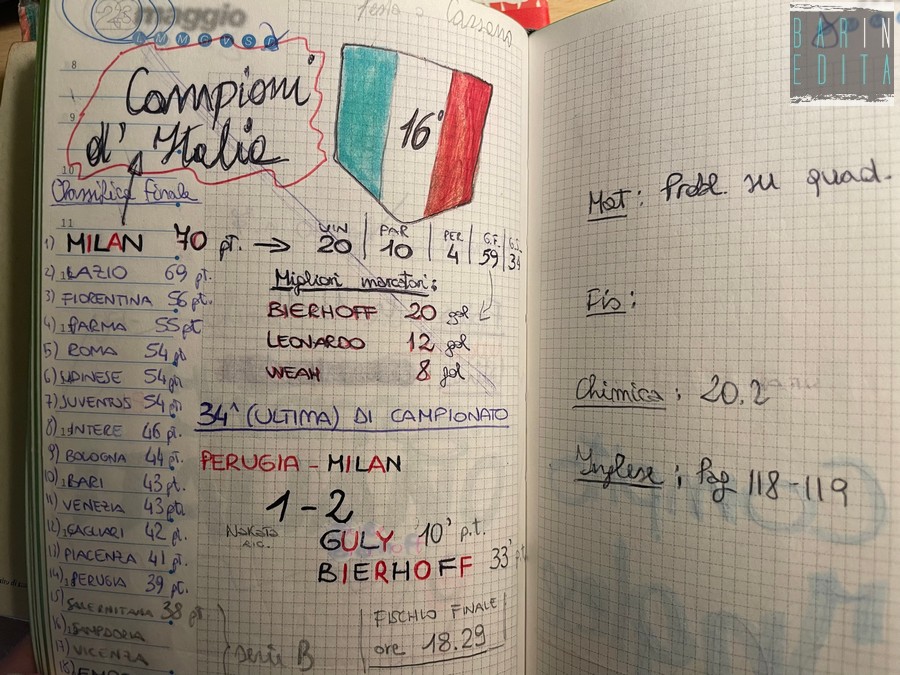 23 maggio
L M M G V S D
Campioni
d'Italia
16°
Classifica Finale
1) MILAN 70 pt. → VIN 20 | PAR 10 | PER 4 | G.F. 59 | G.S. 34
2) LAZIO 69 pt.
3) FIORENTINA 56 pt.
4) PARMA 55 pt
5) ROMA 54 pt
6) UDINESE 54 pt.
7) JUVENTUS 54 pt
8) INTERE 46 pt.
9) BOLOGNA 44 pt.
10) BARI 43 pt.
11) VENEZIA 43 pt.
12) CAGLIARI 42 pt.
13) PIACENZA 41 pt.
14) PERUGIA 39 pt.
15) SALERNITANA 38 pt.
16) SAMPDORIA
17) VICENZA
18)
Serie B
Migliori marcatori:
BIERHOFF 20 gol
LEONARDO 12 gol
WEAH 8 gol
34^ (ULTIMA) DI CAMPIONATO
PERUGIA - MILAN
1 - 2
Nakata
RIG.
GULY 10' p.t.
BIERHOFF 33'
FISCHIO FINALE
ore 18.29
Mat: Probl. su quad.
Fis:
Chimica: 20.2
Inglese: Pag 118-119
BARIN
EDITA
8
9
10
11